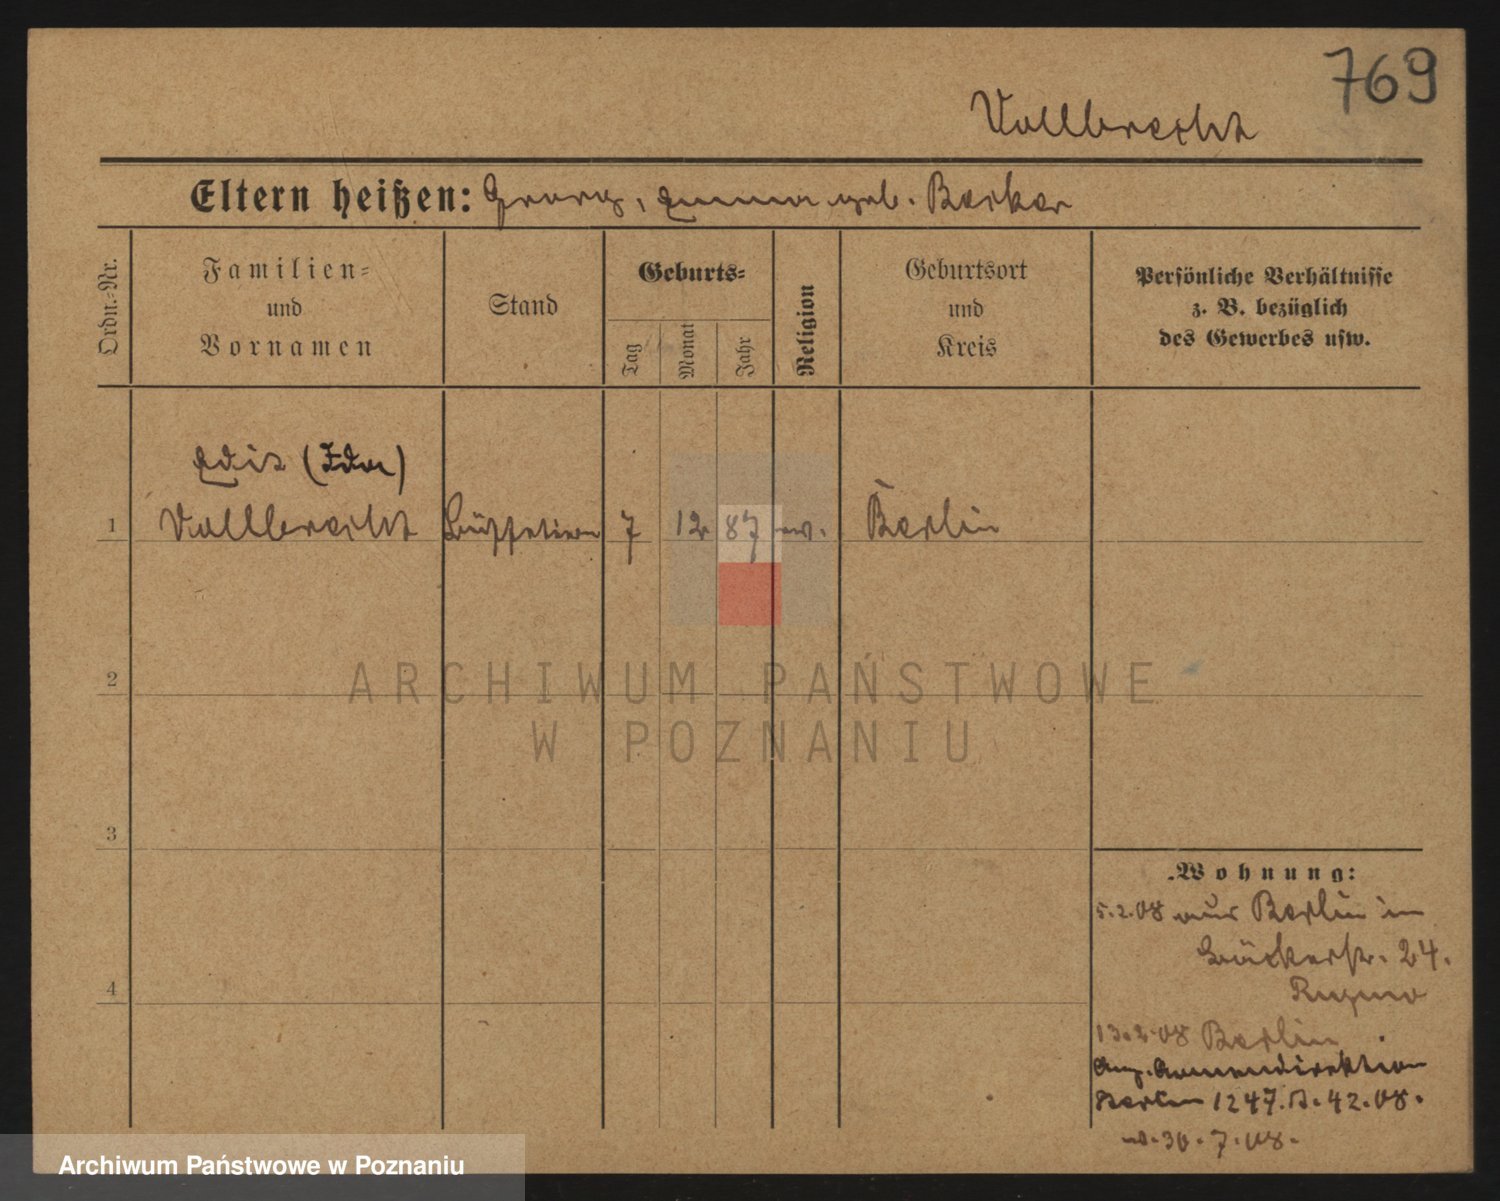 769
Vollbrecht
Eltern heißen: Georg, Emma geb. Becker
Ordn.-Nr.
Familien-
und
Vornamen
Stand
Geburts-
Tag
Monat
Jahr
Religion
Geburtsort
und
Kreis
Persönliche Verhältnisse
z. B. bezüglich
des Gewerbes usw.
Edit (Ida)
1 Vollbrecht Büffetiere 7 12 87 ev. Berlin
2
ARCHIWUM PAŃSTWOWE
W POZNANIU
3
Wohnung:
5.2.08 aus Berlin in
Bäckerstr. 24.
4
13.2.08 Berlin
Ang. Armendirektion
Berlin 1247. 42.08.
v. 30.7.08.
Archiwum Państwowe w Poznaniu